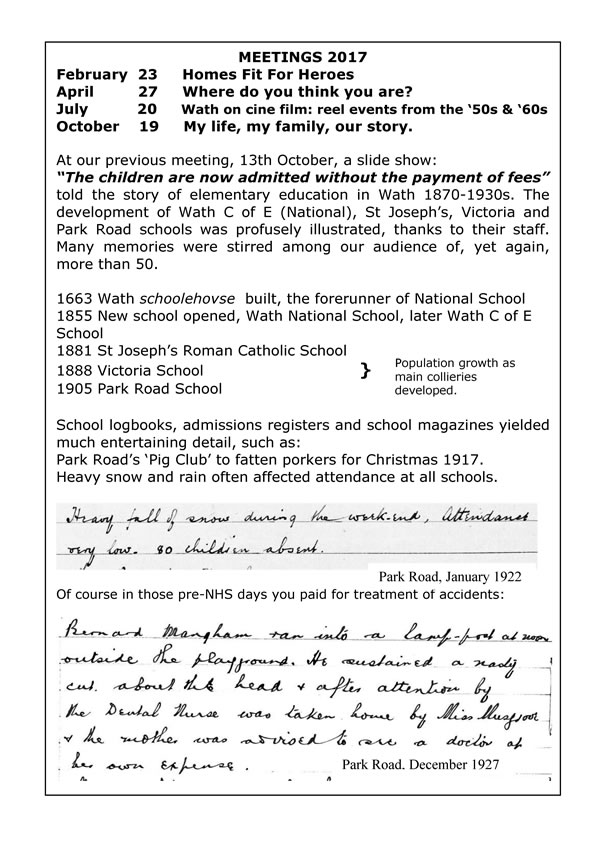 MEETINGS 2017
February 23 Homes Fit For Heroes
April 27 Where do you think you are?
July 20 Wath on cine film: reel events from the ‘50s & ‘60s
October 19 My life, my family, our story.
At our previous meeting, 13th October, a slide show:
“The children are now admitted without the payment of fees”
told the story of elementary education in Wath 1870-1930s. The
development of Wath C of E (National), St Joseph’s, Victoria and
Park Road schools was profusely illustrated, thanks to their staff.
Many memories were stirred among our audience of, yet again,
more than 50.
1663 Wath schoolehovse built, the forerunner of National School
1855 New school opened, Wath National School, later Wath C of E
School
1881 St Joseph’s Roman Catholic School
1888 Victoria School
1905 Park Road School
}
Population growth as
main collieries
developed.
School logbooks, admissions registers and school magazines yielded
much entertaining detail, such as:
Park Road’s ‘Pig Club’ to fatten porkers for Christmas 1917.
Heavy snow and rain often affected attendance at all schools.
Heavy fall of snow during the week-end, Attendance
very low. 80 children absent.
Park Road, January 1922
Of course in those pre-NHS days you paid for treatment of accidents:
Bernard Mangham ran into a lamp-post at noon
outside the playground. He sustained a nasty
cut about the head & after attention by
the Dental Nurse was taken home by Miss
& the mother was advised to see a doctor at
her own expense.
Park Road. December 1927